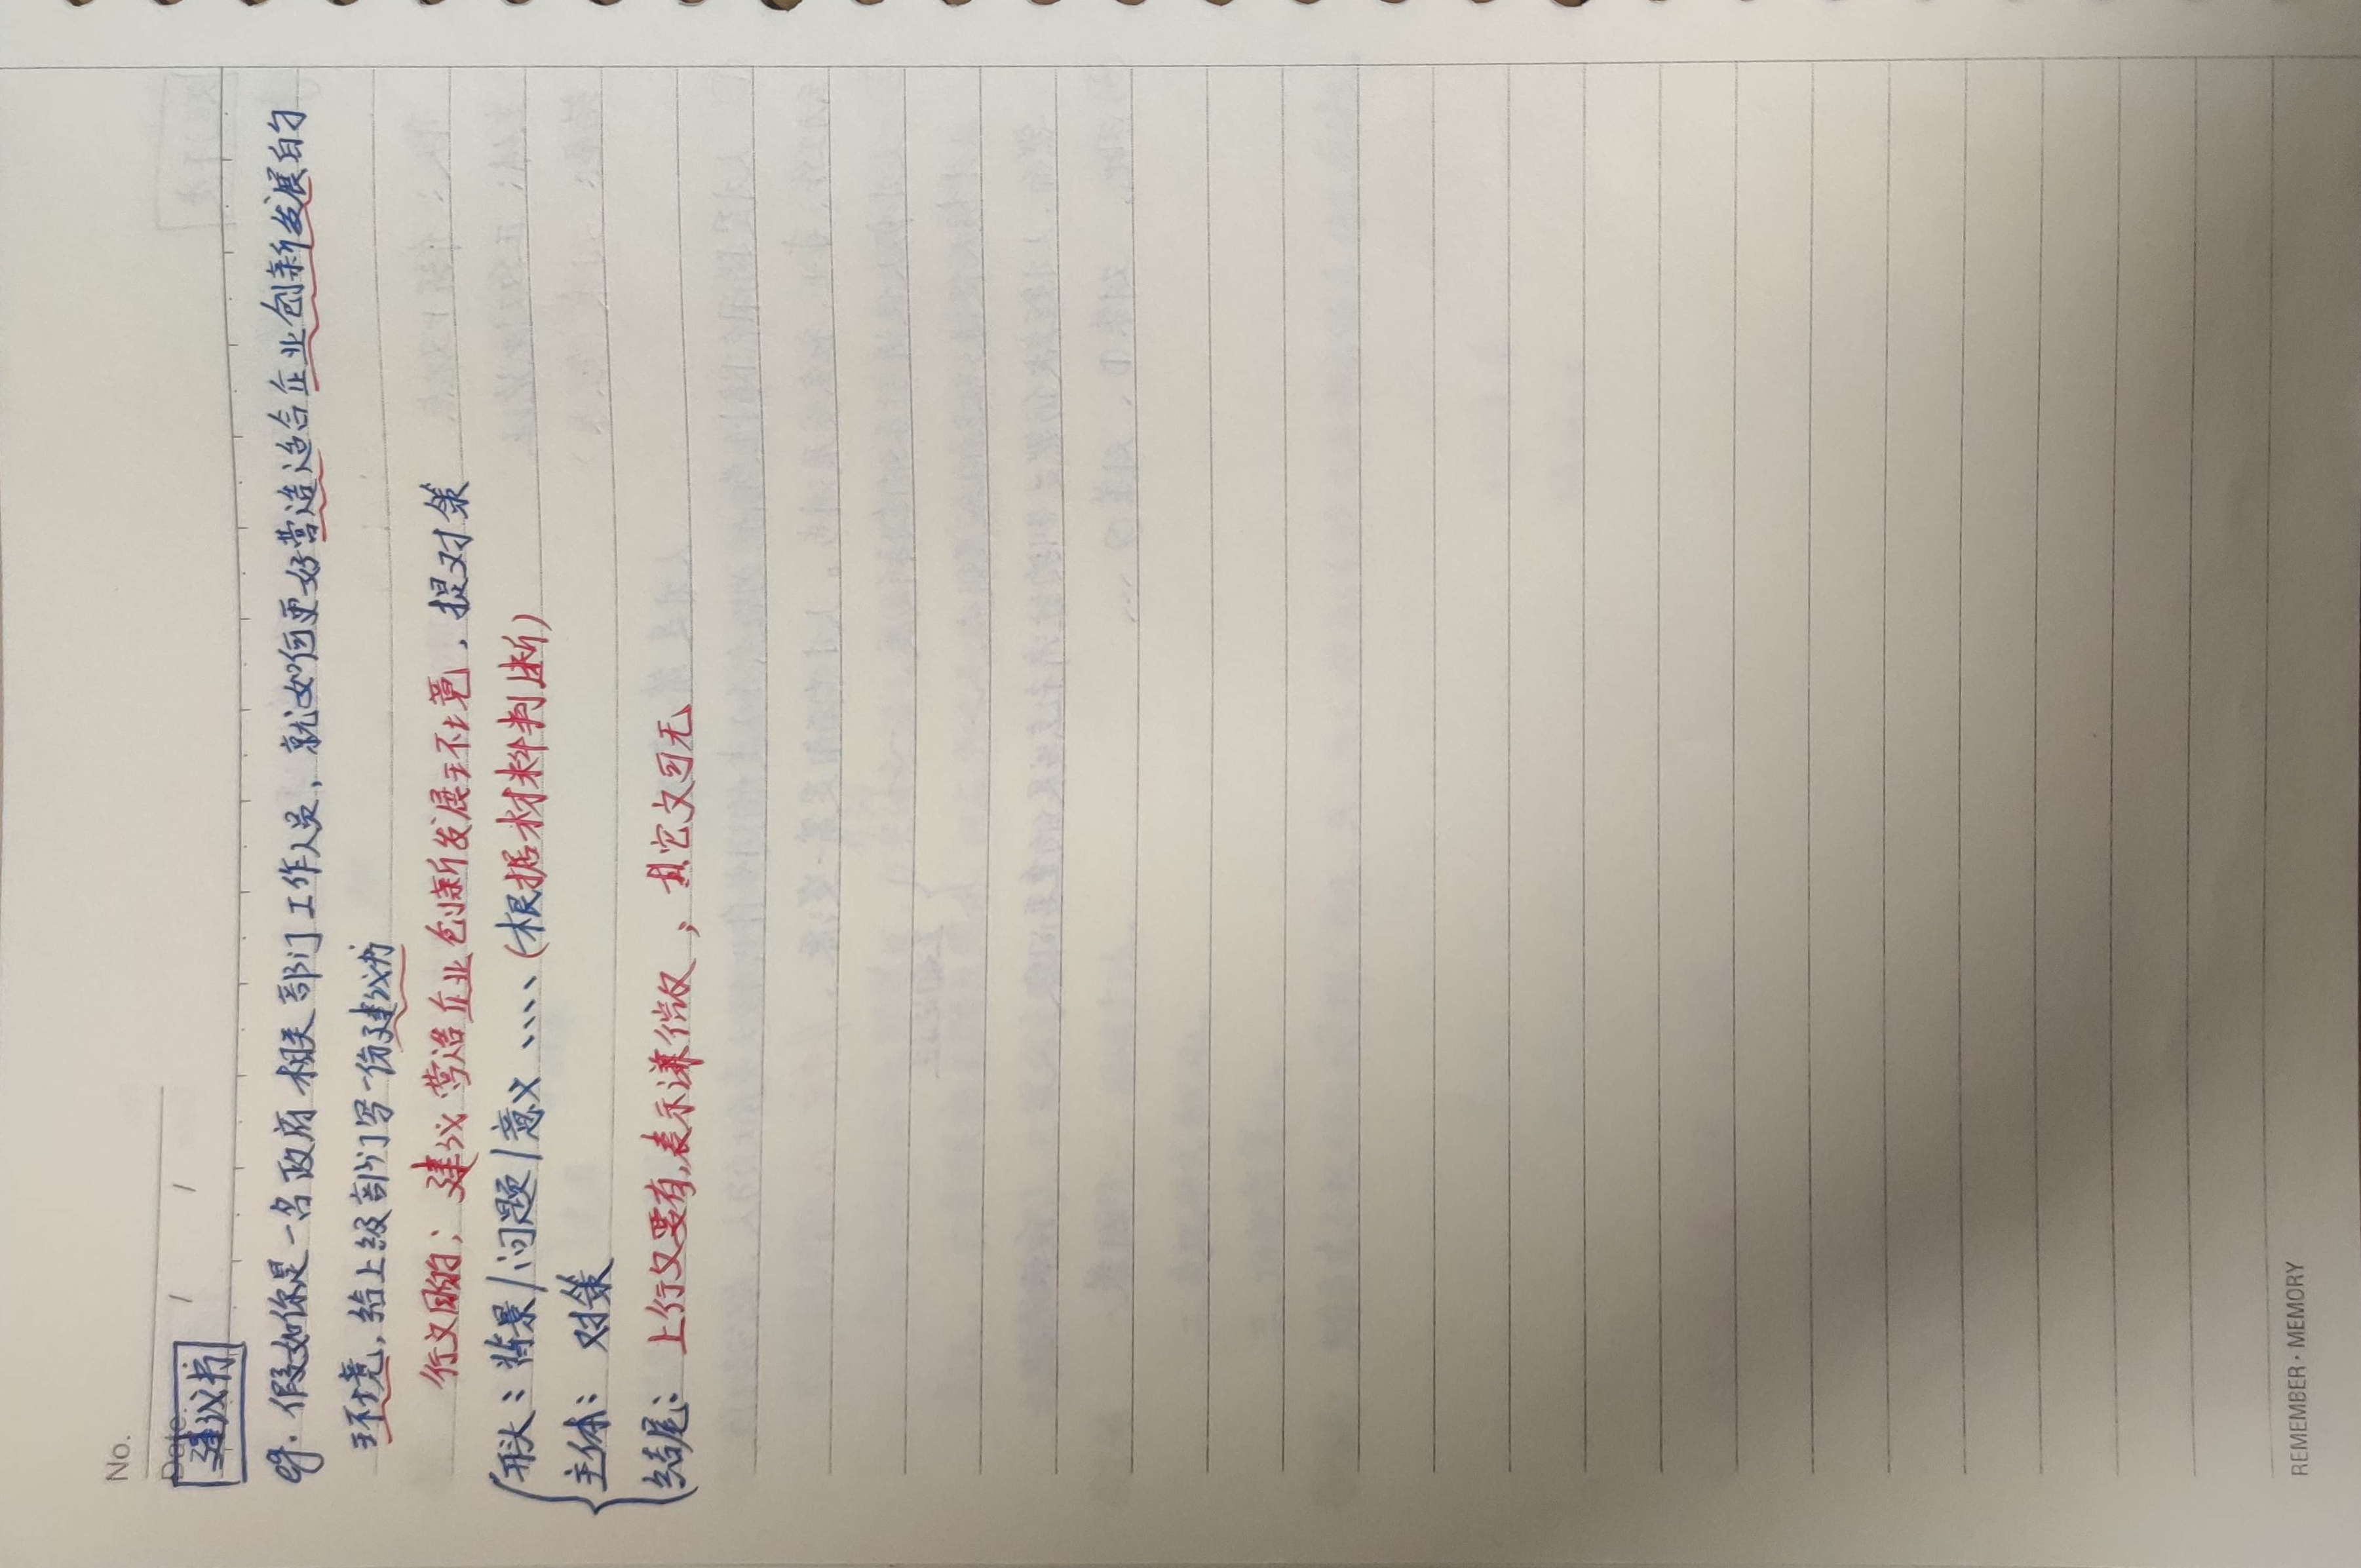 No.
Date. / /
建议书
eg. 假如你是一名政府相关部门工作人员，就如何更好营造适合企业创新发展的
环境，给上级部门写一份建议书
行文目的：建议营造企业创新发展环境，提对策
开头：背景/问题/意义、、、、（根据材料判断）
主体：对策
结尾：上行文要有，表示谦微；其它文可无
REMEMBER · MEMORY